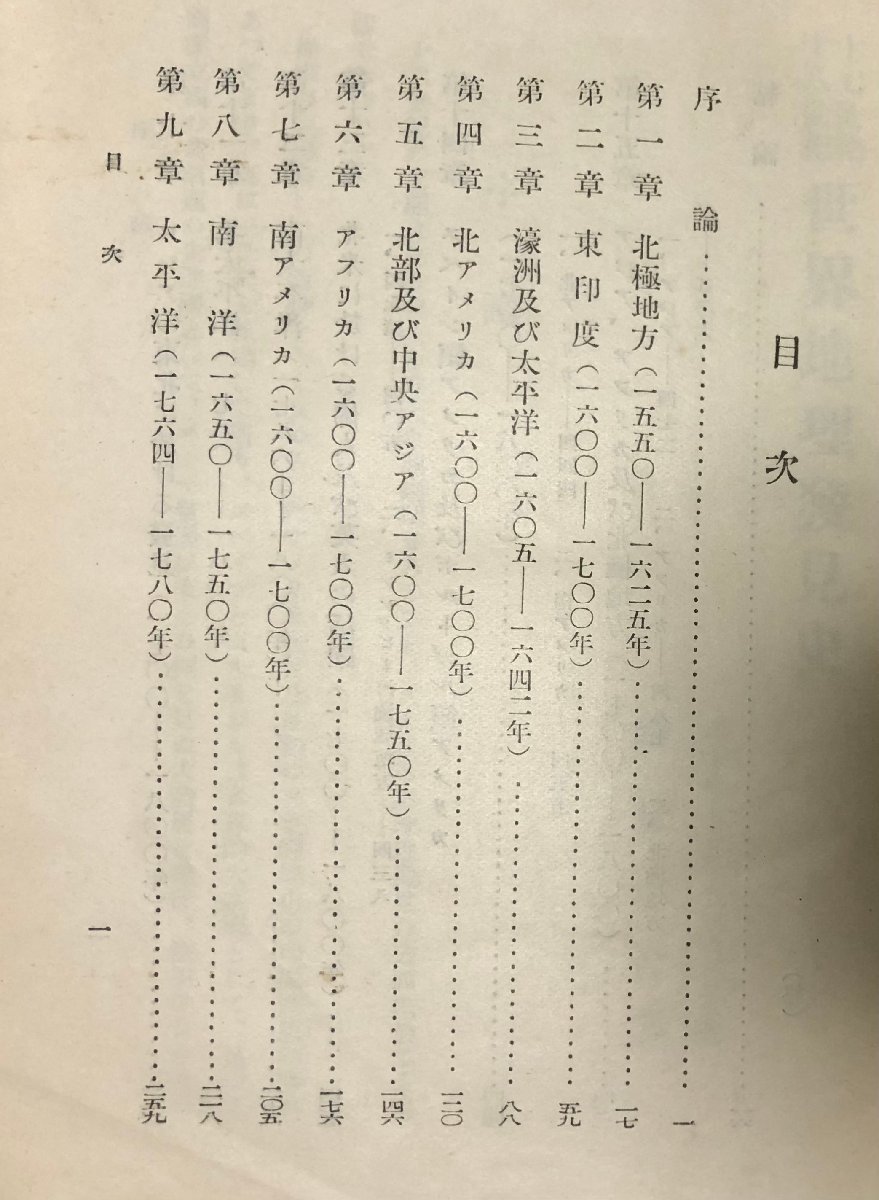 目次
序論……………………………………一
第一章 北極地方(一五五〇——一六二五年)……………………一七
第二章 東印度(一六〇〇——一七〇〇年)……………………五九
第三章 濠洲及び太平洋(一六〇五——一六四二年)………………八八
第四章 北アメリカ(一六〇〇——一七〇〇年)…………………一二〇
第五章 北部及び中央アジア(一六〇〇——一七五〇年)……………一四六
第六章 アフリカ(一六〇〇——一七〇〇年)……………………一七六
第七章 南アメリカ(一六〇〇——一七〇〇年)……………………二〇五
第八章 南洋(一六五〇——一七五〇年)……………………二一八
第九章 太平洋(一七六四——一七八〇年)……………………二五九
目次
一